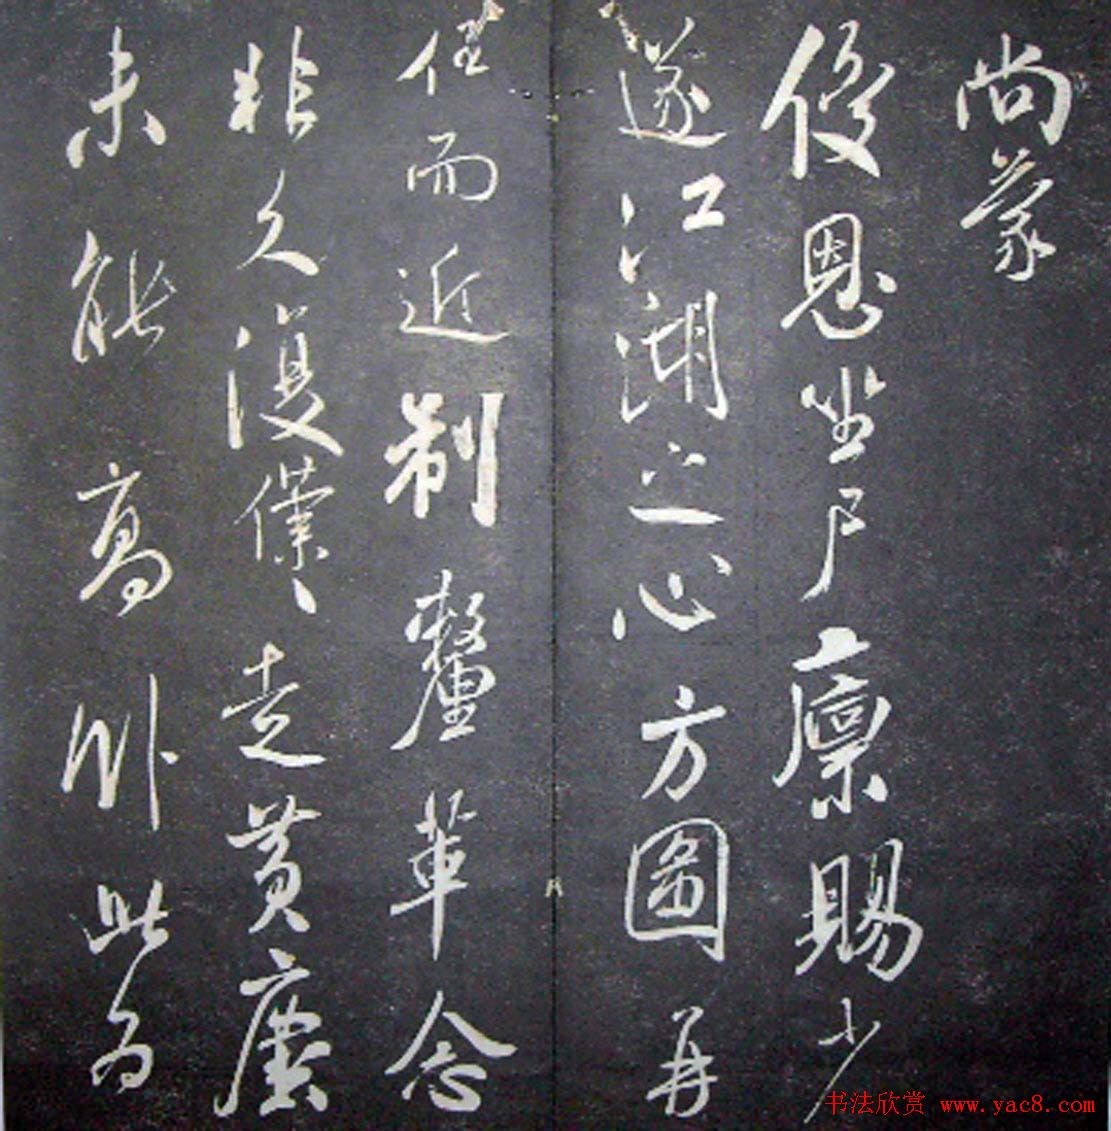 尚蒙
優恩坐尸廩賜少
遂江湖之心方圖再
任而近制釐革念
非久復僕、走黃塵
未能高卧此為
书法欣赏 www.yac8.com